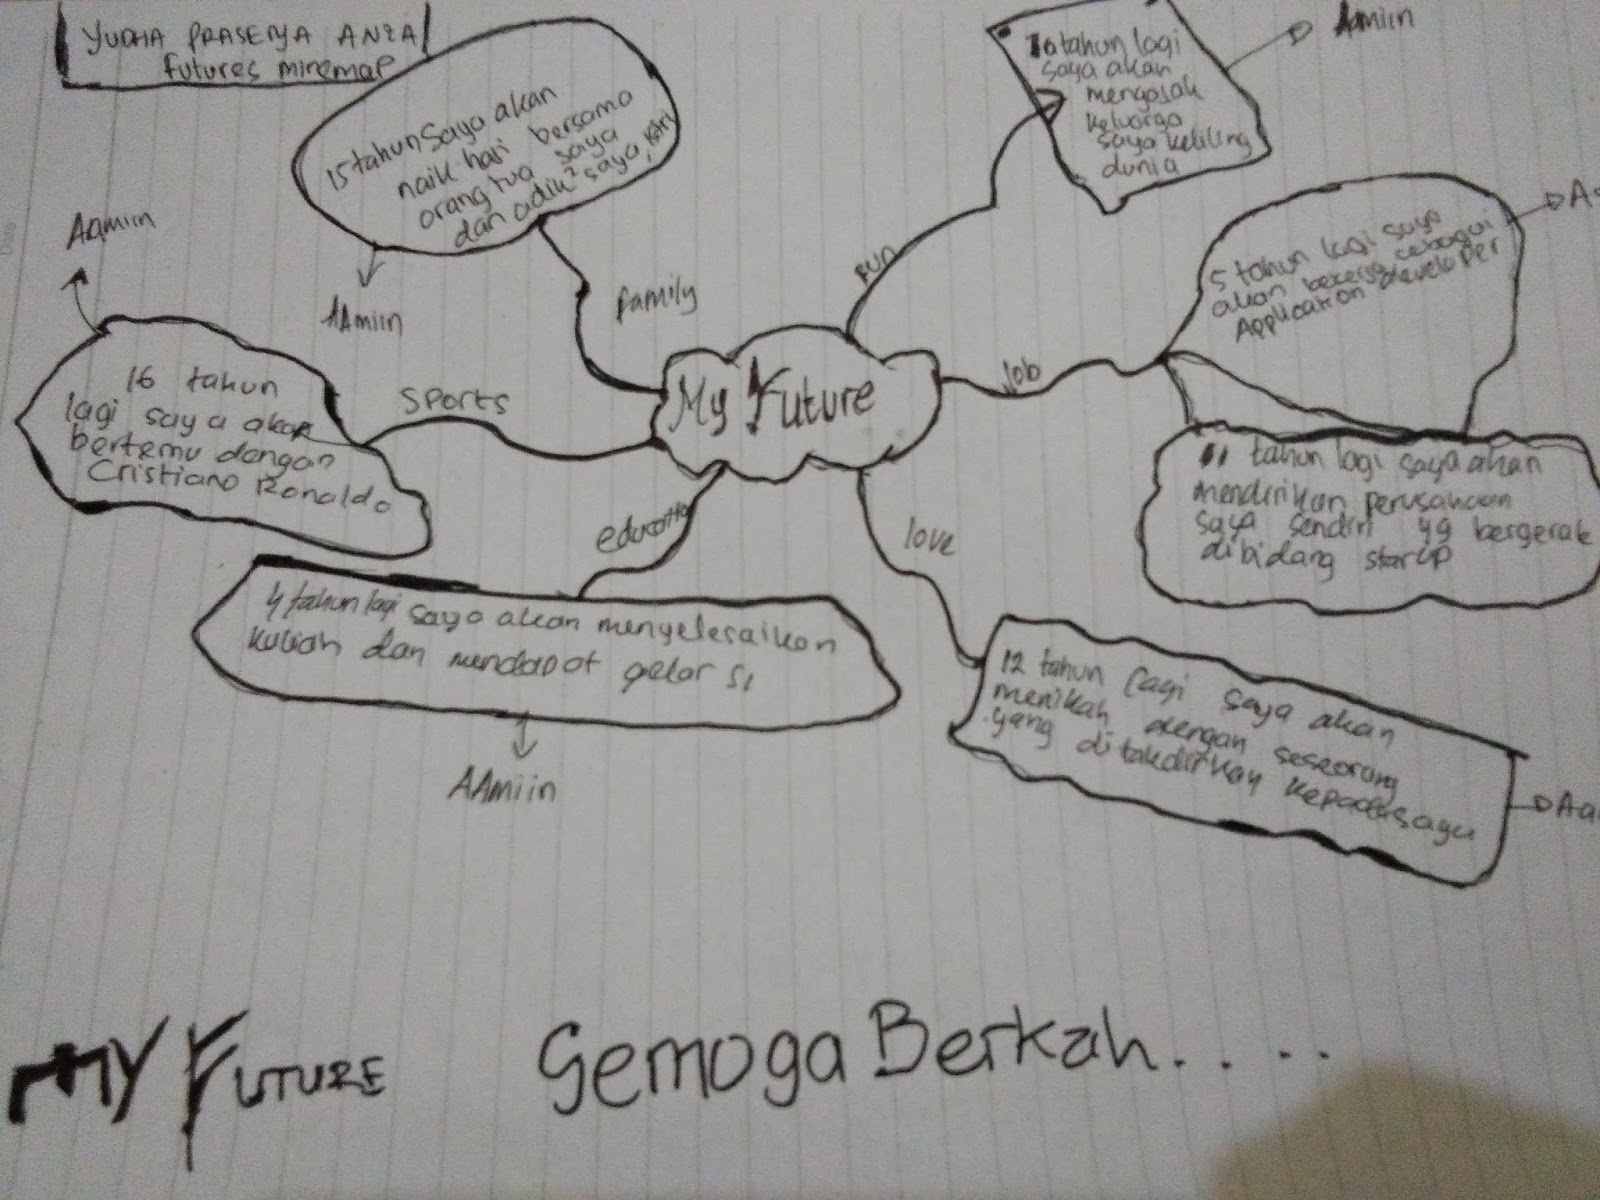 YUDHA PRASETYA ANZA
Futures minemap
15 tahun saya akan
naik haji bersama
orang tua saya
dan adik² saya, istri
AAmiin
family
10 tahun lagi
saya akan
mengajak
keluarga
saya keliling
dunia
AAmiin
FUN
5 tahun lagi saya
akan bekerja sebagai
Application developer
Job
11 tahun lagi saya akan
mendirikan perusahaan
saya sendiri yg bergerak
dibidang starup
My Future
AAmiin
16 tahun
lagi saya akan
bertemu dengan
Cristiano Ronaldo
SPORTS
education
4 tahun lagi saya akan menyelesaikan
kuliah dan mendapat gelar S1
AAmiin
love
12 tahun lagi saya akan
menikah dengan seseorang
yang ditakdirkan kepada saya
MY FUTURE
Semoga Berkah.....